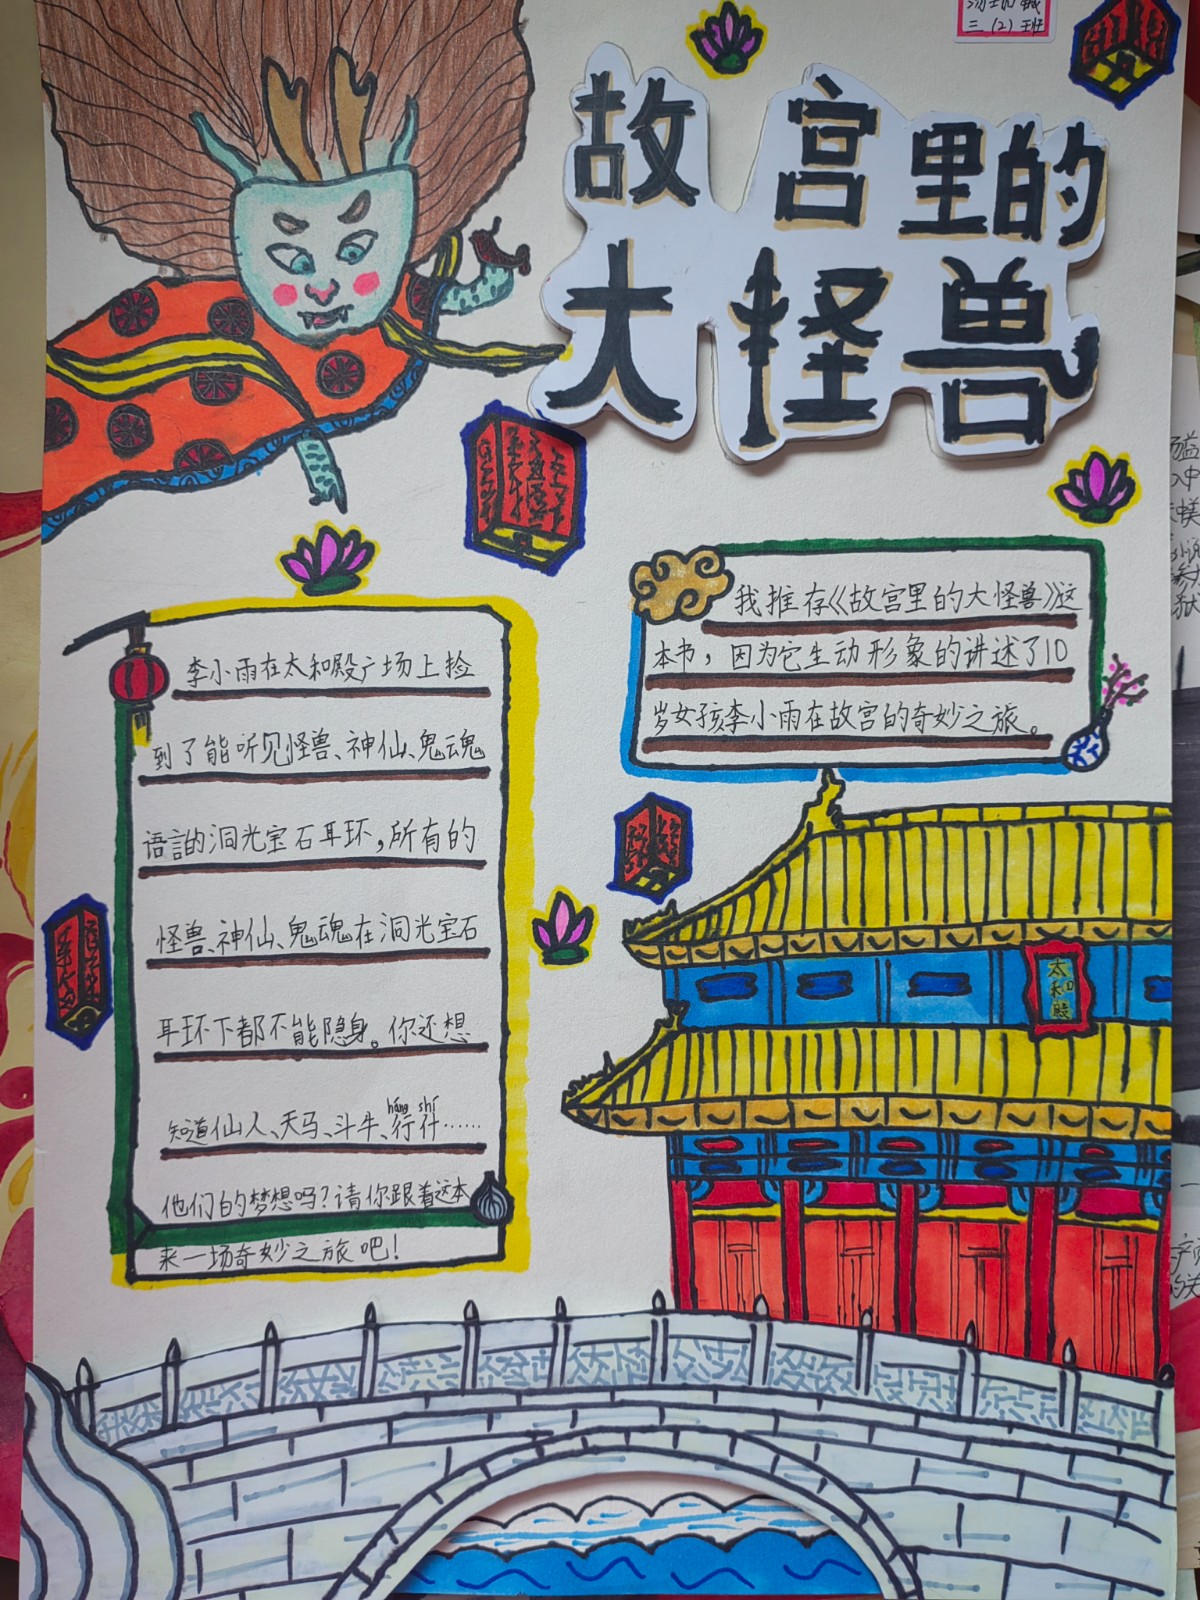 三（2）班
故宫里的
大怪兽
我推存《故宫里的大怪兽》这
本书，因为它生动形象的讲述了10
岁女孩李小雨在故宫的奇妙之旅。
李小雨在太和殿广场上捡
到了能听见怪兽、神仙、鬼魂
语言的洞光宝石耳环，所有的
怪兽、神仙、鬼魂在洞光宝石
耳环下都不能隐身。你还想
háng shí
知道仙人、天马、斗牛、行什……
他们的梦想吗？请你跟着这本
来一场奇妙之旅吧！
太和殿